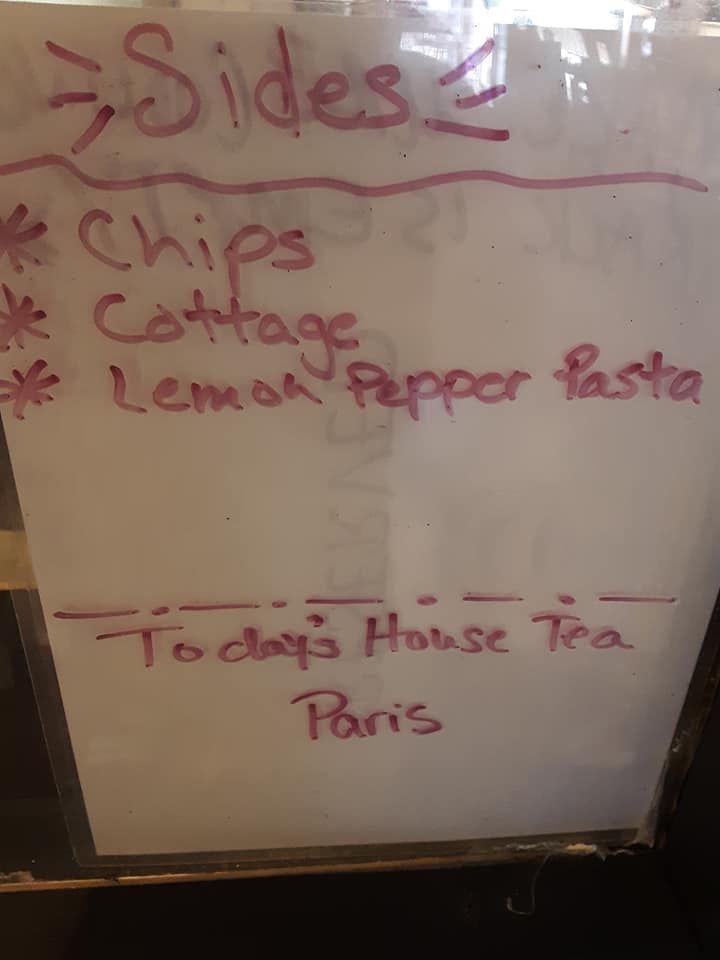 Sides
* Chips
* Cottage
* Lemon Pepper Pasta
Today's House Tea
Paris